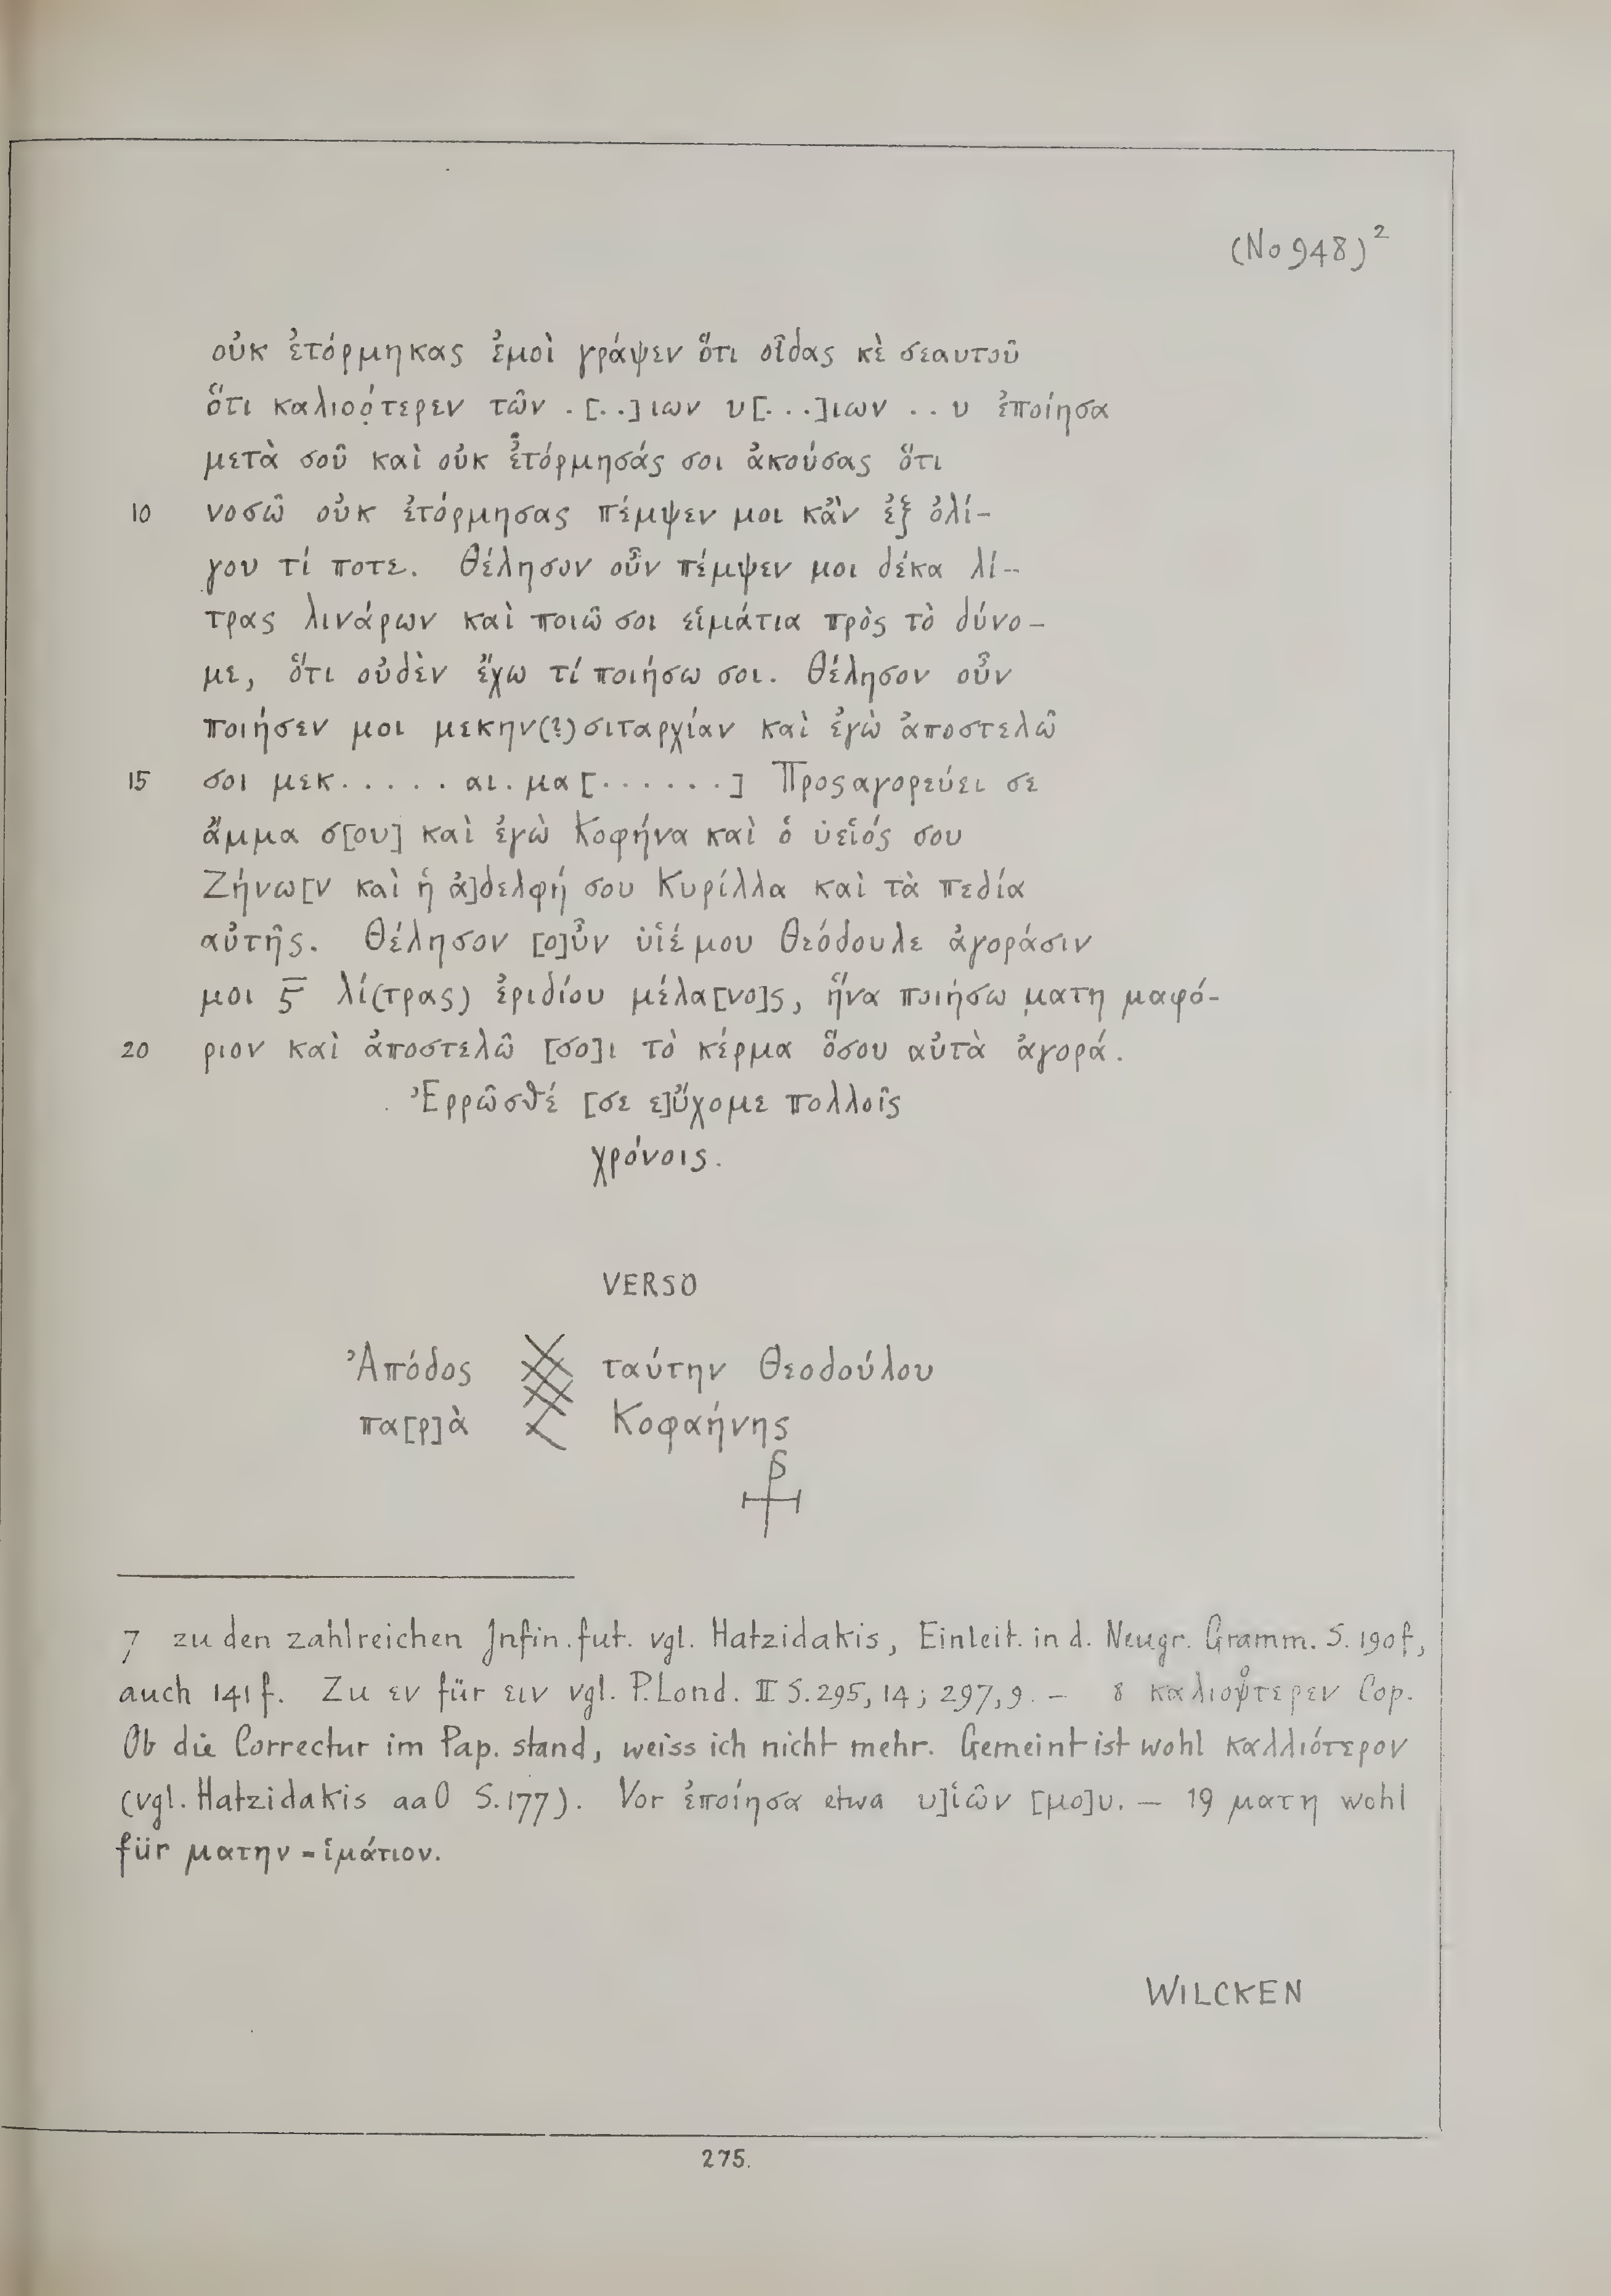 (No 948)²
οὐκ ἐτόρμηκας ἐμοὶ γράψεν ὅτι οἶδας κὲ σεαυτοῦ
ὅτι καλιοό̣τερεν τῶν . [. .] ιων υ[. . .]ιων . . υ ἐποίησα
μετὰ σοῦ καὶ οὐκ ἐτόρμησάς σοι ἀκούσας ὅτι
10 νοσῶ οὐκ ἐτόρμησας πέμψεν μοι κἂν ἐξ ὀλί-
γου τί ποτε. Θέλησον οὖν πέμψεν μοι δέκα λί-
τρας λινάρων καὶ ποιῶ σοι εἱμάτια πρὸς τὸ δύνο-
με, ὅτι οὐδὲν ἔχω τί ποιήσω σοι. Θέλησον οὖν
ποιήσεν μοι μεκην(?) σιταρχίαν καὶ ἐγὼ ἀποστελῶ
15 σοι μεκ. . . . . αι. μα [. . . . . .] Προςαγορεύει σε
ἄμμα σ[ου] καὶ ἐγὼ Κοφήνα καὶ ὁ ὑειός σου
Ζήνω[ν καὶ ἡ ἀ]δελφή σου Κυρίλλα καὶ τὰ πεδία
αὐτῆς. Θέλησον [ο]ὖν ὑιέ μου Θεόδουλε ἀγοράσιν
μοι ϛ̅ λί(τρας) ἐριδίου μέλα[νο]ς, ἥνα ποιήσω μ̣ατη μαφό-
20 ριον καὶ ἀποστελῶ [σο]ι τὸ κέρμα ὅσου αὐτὰ ἀγορά.
Ἐρρῶσθέ [σε ε]ὔχομε πολλοῖς
χρόνοις.
VERSO
Ἀπόδος ταύτην Θεοδούλου
πα[ρ]ὰ Κοφαήνης
7 zu den zahlreichen Infin. fut. vgl. Hatzidakis, Einleit. in d. Neugr. Gramm. S. 190f,
auch 141f. Zu εν für ειν vgl. P. Lond. II S. 295, 14; 297, 9. - 8 καλιοτερεν Cop.
Ob die Correctur im Pap. stand, weiss ich nicht mehr. Gemeint ist wohl καλλιότερον
(vgl. Hatzidakis aaO S. 177). Vor ἐποίησα etwa υ]ἱῶν [μο]υ. — 19 ματη wohl
für ματην = ἱμάτιον.
WILCKEN
275.